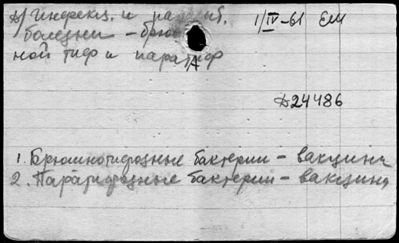 А) Инфекц. и
1/IV-61 ЕМ
болезни - брюш
ной тиф и паратиф
А
Д24486
1. Брюшнотифозные бактерии - вакцины
2. Паратифозные бактерии - вакцины